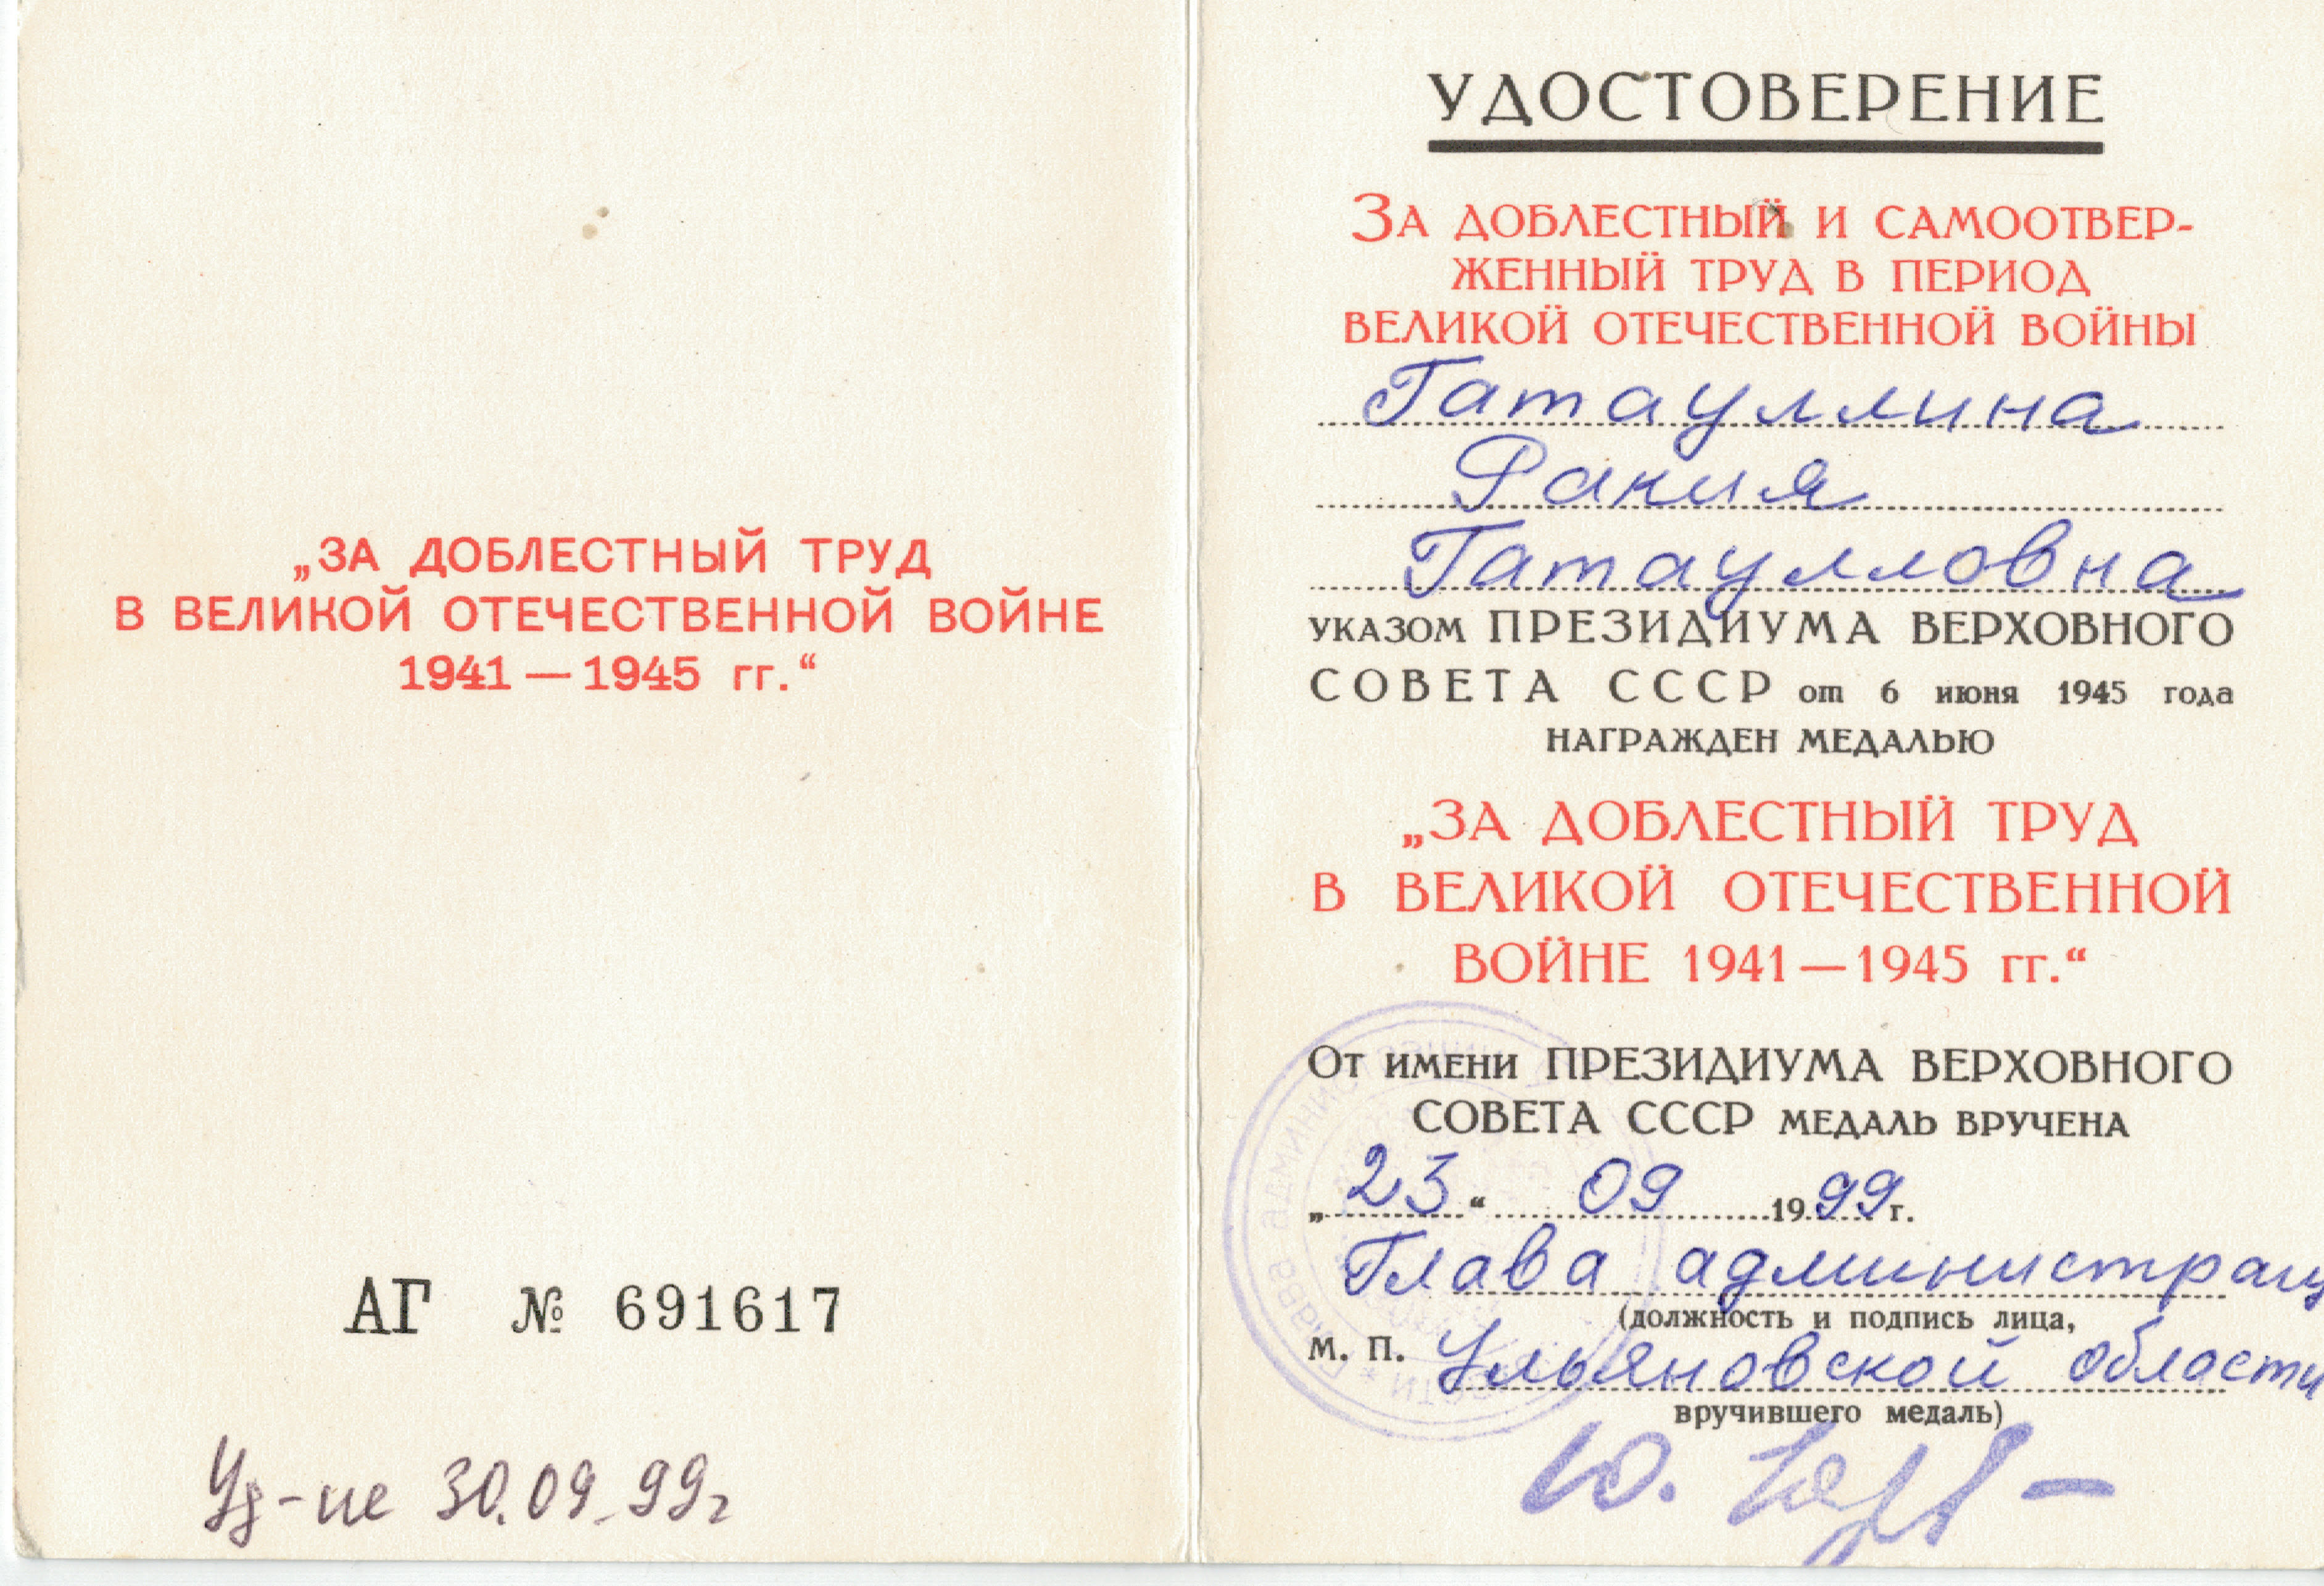 „ЗА ДОБЛЕСТНЫЙ ТРУД
В ВЕЛИКОЙ ОТЕЧЕСТВЕННОЙ ВОЙНЕ
1941 — 1945 гг.“
АГ № 691617
Уд-ие 30.09.99г
УДОСТОВЕРЕНИЕ
ЗА ДОБЛЕСТНЫЙ И САМООТВЕР-
ЖЕННЫЙ ТРУД В ПЕРИОД
ВЕЛИКОЙ ОТЕЧЕСТВЕННОЙ ВОЙНЫ
Гатауллина
Ракия
Гатаулловна
УКАЗОМ ПРЕЗИДИУМА ВЕРХОВНОГО
СОВЕТА СССР от 6 июня 1945 года
НАГРАЖДЕН МЕДАЛЬЮ
„ЗА ДОБЛЕСТНЫЙ ТРУД
В ВЕЛИКОЙ ОТЕЧЕСТВЕННОЙ
ВОЙНЕ 1941 — 1945 гг.“
ОТ ИМЕНИ ПРЕЗИДИУМА ВЕРХОВНОГО
СОВЕТА СССР МЕДАЛЬ ВРУЧЕНА
„23“ 09 1999 г.
Глава администрац
(должность и подпись лица,
М. П. Ульяновской области
вручившего медаль)
Глава админис